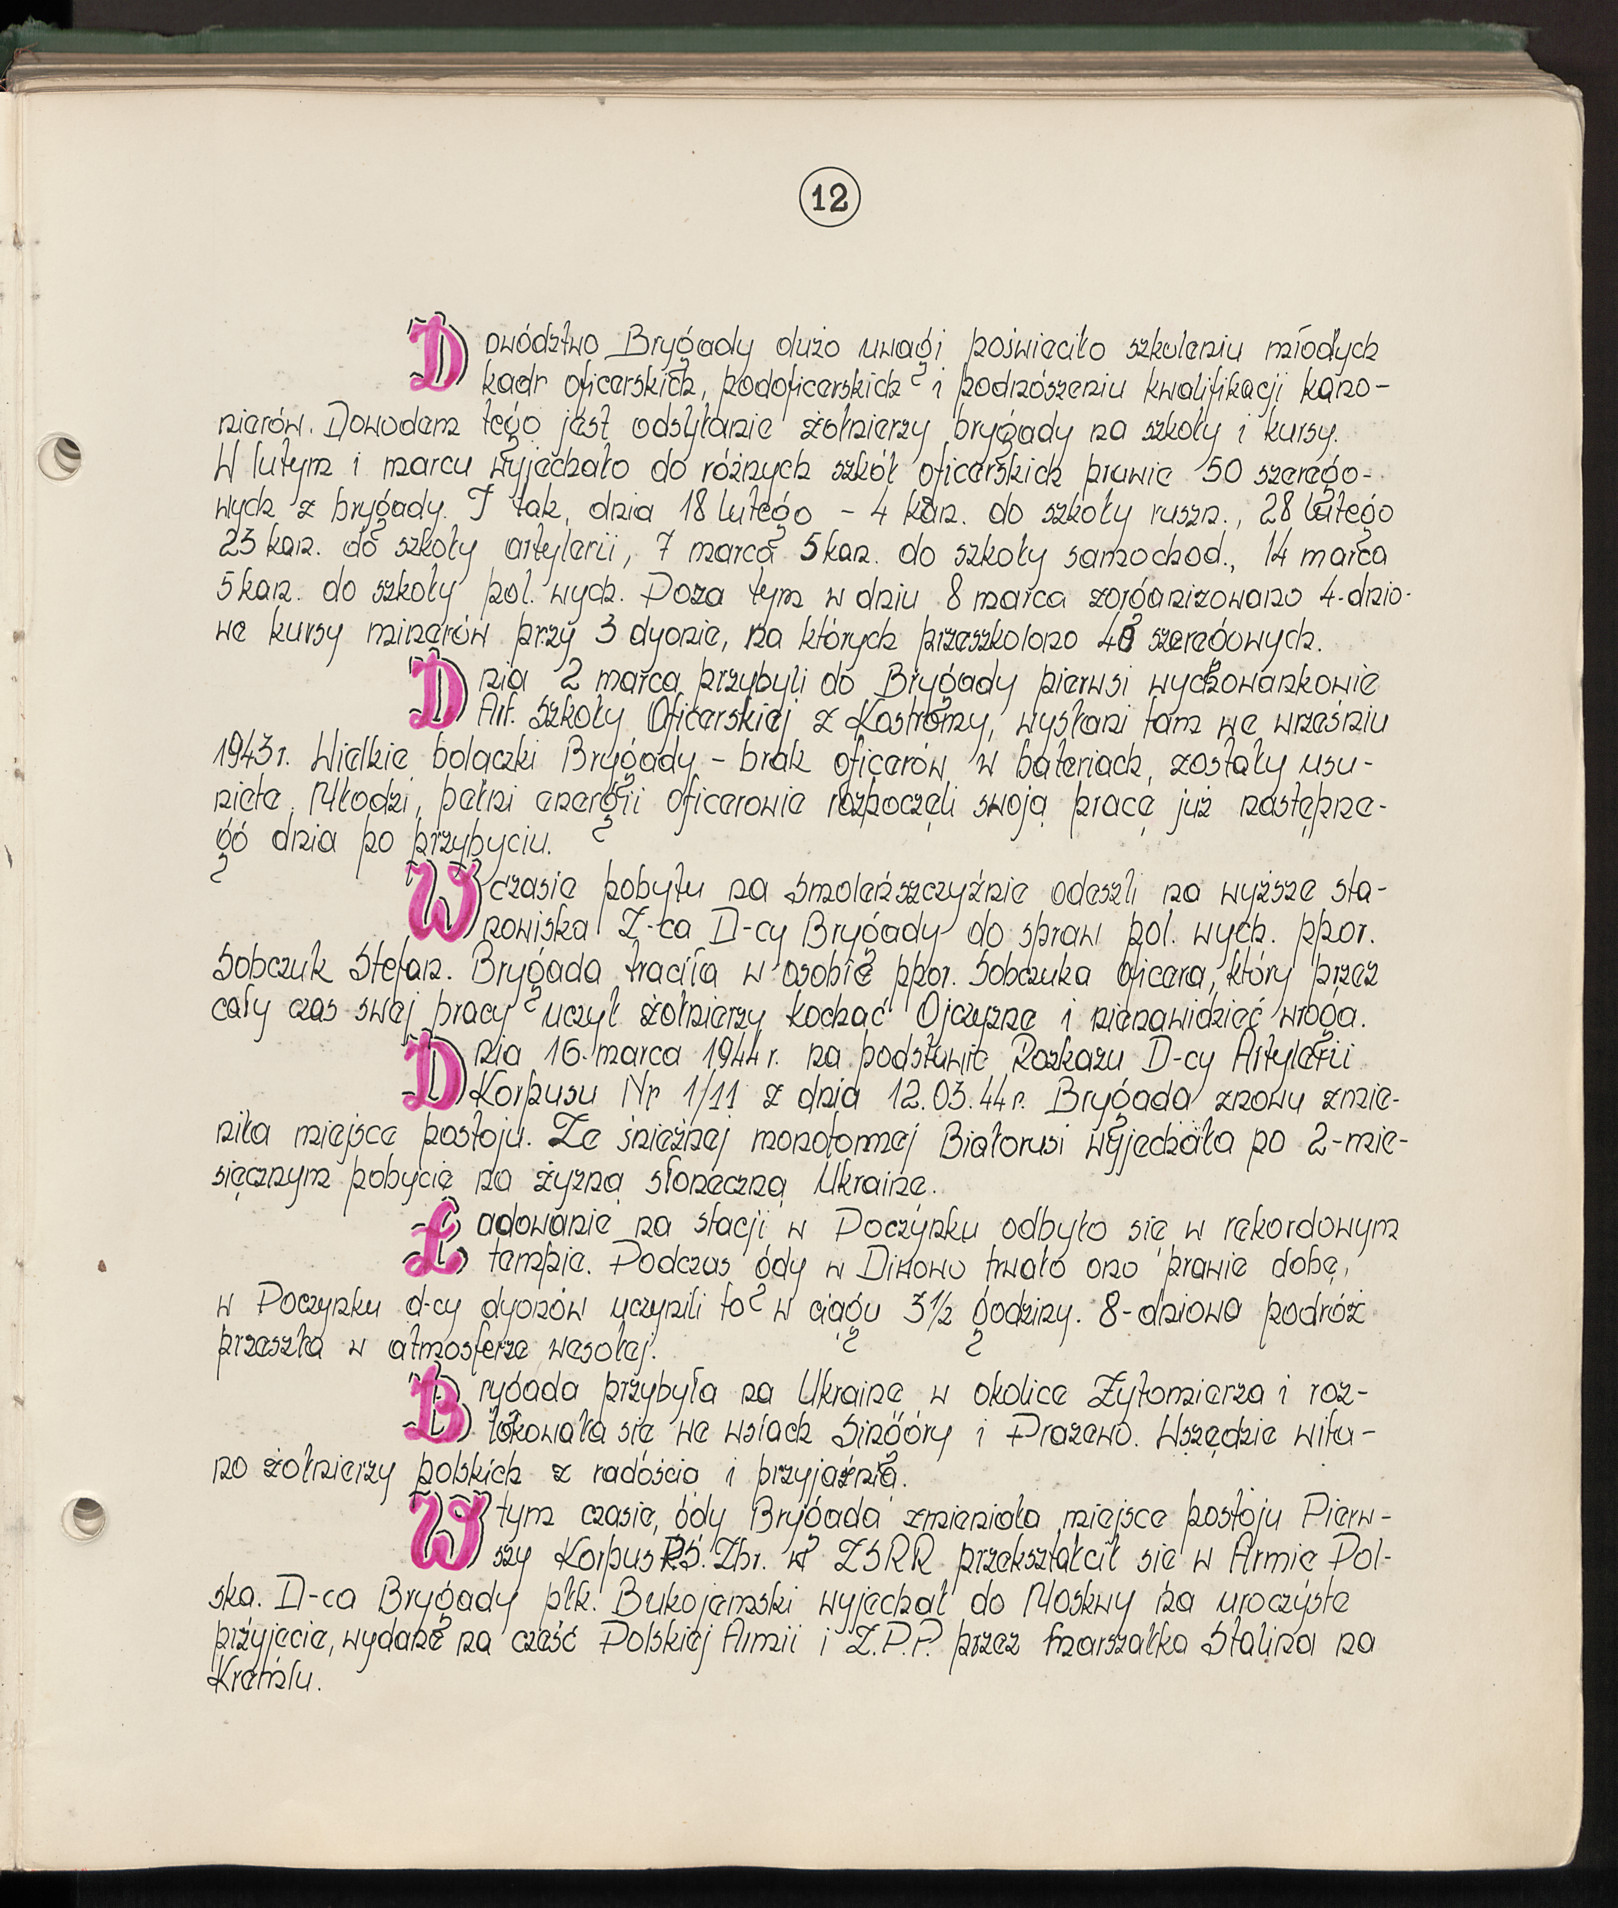 12
Dowództwo Brygady dużo uwagi poświęciło szkoleniu młodych
kadr oficerskich, podoficerskich i podnószeniu kwalifikacji kano-
nierów. Dowodem tego jest odsyłanie żołnierzy brygady na szkoły i kursy.
W lutym i marcu wyjechało do różnych szkół oficerskich prawie 50 szerego-
wych z brygady. I tak, dnia 18 lutego - 4 kan. do szkoły ruszn., 28 lutego
23 kan. do szkoły artylerii, 7 marca 5 kan. do szkoły samochod., 14 marca
5 kan. do szkoły pol. wych. Poza tym w dniu 8 marca zorganizowano 4-dnio-
we kursy minerów przy 3 dyonie, na których przeszkolono 40 szeregowych.
Dnia 2 marca przybyli do Brygady pierwsi wychowankowie
Art. Szkoły Oficerskiej z Kostromy, wysłani tam we wrześniu
1943 r. Wielkie bolączki Brygady - brak oficerów w bateriach, zostały usu-
nięte. Młodzi, pełni energii oficerowie rozpoczęli swoją pracę już następne-
go dnia po przybyciu.
W czasie pobytu na Smoleńszczyźnie odeszli na wyższe sta-
nowiska Z-ca D-cy Brygady do spraw pol. wych. ppor.
Sobczuk Stefan. Brygada traciła w osobie ppor. Sobczuka oficera, który przez
cały czas swej pracy uczył żołnierzy kochać Ojczyznę i nienawidzieć wroga.
Dnia 16 marca 1944 r. na podstawie Rozkazu D-cy Artylerii
Korpusu Nr 1/11 z dnia 12.03.44 r. Brygada znowu zmie-
niła miejsce postoju. Ze śnieżnej monotonnej Białorusi wyjechała po 2-mie-
sięcznym pobycie na żyzną słoneczną Ukrainę.
Ładowanie na stacji w Poczynku odbyło się w rekordowym
tempie. Podczas gdy w Diwowo trwało ono prawie dobę,
w Poczynku d-cy dyonów uczynili to w ciągu 3 1/2 godziny. 8-dniowa podróż
przeszła w atmosferze wesołej.
Brygada przybyła na Ukrainę w okolice Żytomierza i roz-
lokowała się we wsiach Singóry i Prażewo. Wszędzie wita-
no żołnierzy polskich z radością i przyjaźnią.
W tym czasie, gdy Brygada zmieniała miejsce postoju Pierw-
szy Korpus P.S. Zbr. w ZSRR przekształcił się w Armię Pol-
ską. D-ca Brygady płk. Bukojemski wyjechał do Moskwy na uroczyste
przyjęcie, wydane na cześć Polskiej Armii i Z.P.P. przez marszałka Stalina na
Kremlu.